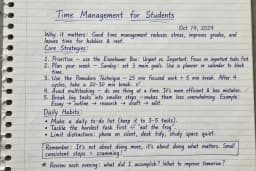 Time Management for Students
Oct 19, 2024
Why it matters: Good time management reduces stress, improves grades, and
leaves time for hobbies & rest.
Core Strategies:
1. Prioritize - use the Eisenhower Box: Urgent vs. Important. Focus on important tasks first.
2. Plan your week - Sunday: set 3 main goals. Use a planner or calendar to block
time.
3. Use the Pomodoro Technique - 25 min focused work + 5 min break. After 4
cycles, take a 20-30 min break.
4. Avoid multitasking - do one thing at a time. It's more efficient & less mistakes.
5. Break big tasks into smaller steps - makes them less overwhelming. Example:
Essay → outline → research → draft → edit.
Daily Habits:
• Make a daily to-do list (keep it to 3-5 tasks).
• Tackle the hardest task first - "eat the frog".
• Limit distractions: phone on silent, desk tidy, study space quiet.
Remember: It's not about doing more, it's about doing what matters. Small
consistent steps > cramming!
★ Review each evening: what did I accomplish? What to improve tomorrow?